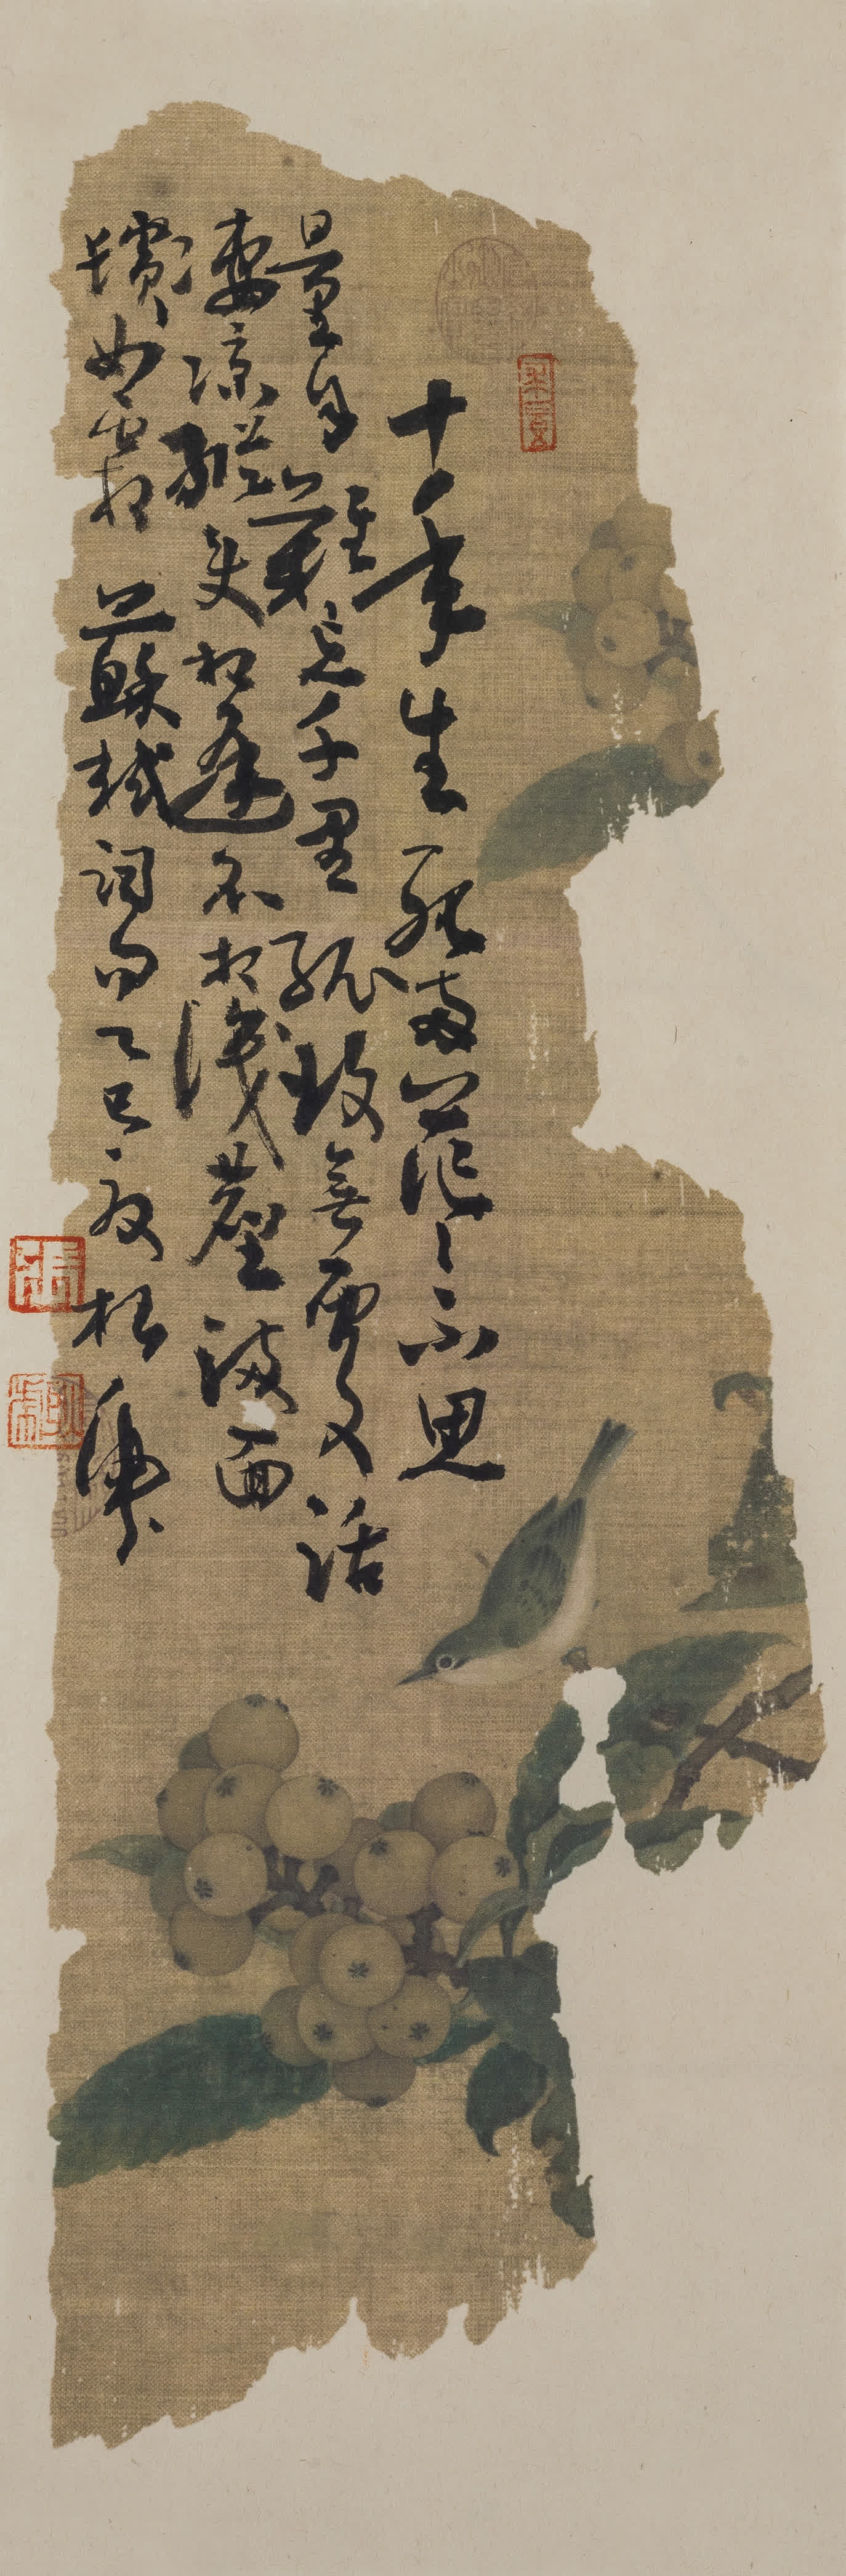 十年生死兩茫〻不思
量自難忘千里孤坟無處話
淒涼縱使相逢不相識塵滿面
鬢如霜 蘇軾詞句乙巳夏松
張